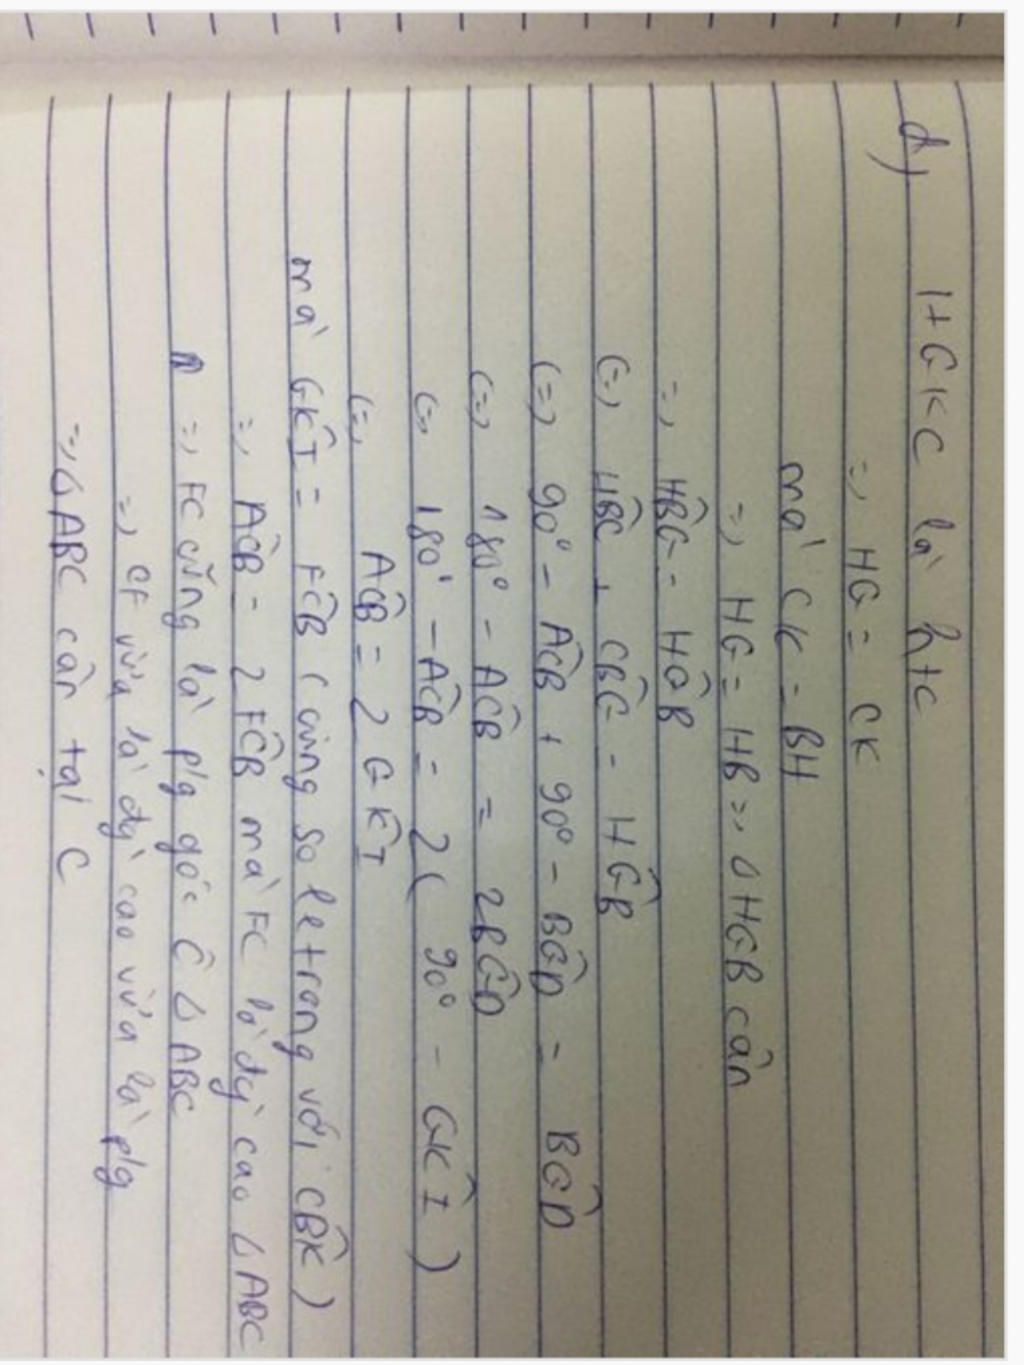 d) HGKC là htc
=> HG = CK
mà CK = BH
=> HG = HB => Δ HGB cân
=> HB̂G = HĜB
(=) HB̂C + CB̂G = HĜB
(=) 90° - AĈB + 90° - BĜD = BĜD
(=) 180° - AĈB = 2BĜD
(=) 180° - AĈB = 2( 90° - GK̂I )
(=) AĈB = 2 GK̂I
mà GK̂I = FĈB ( cùng so le trong với CB̂K )
=> AĈB = 2 FĈB mà FC là đg` cao Δ ABC
=> FC cũng là p/g góc Ĉ Δ ABC
=> CF vừa là đg` cao vừa là p/g
=> Δ ABC cân tại C